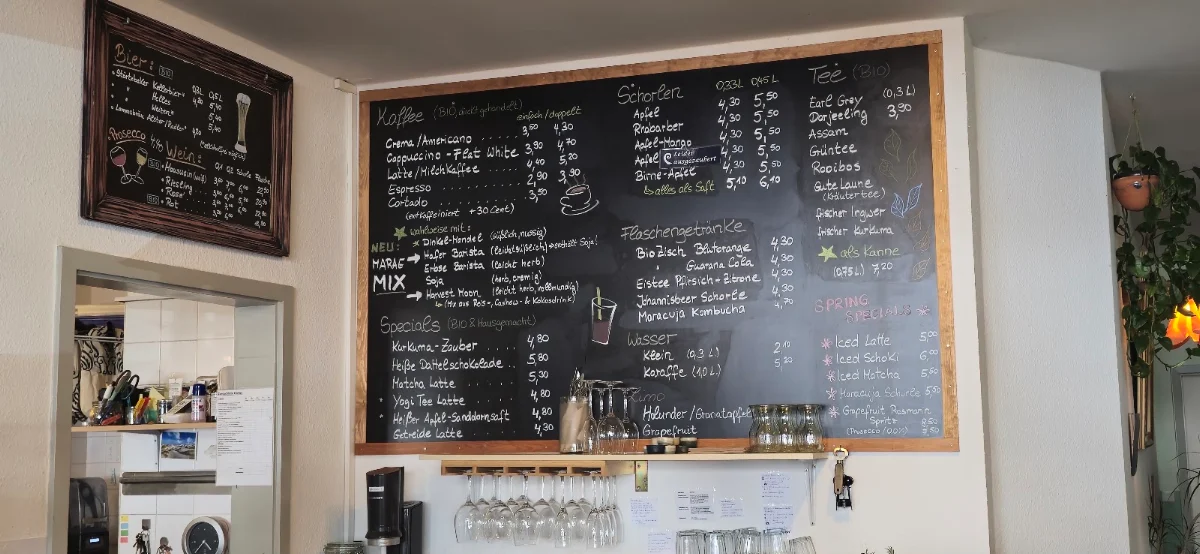 Bier: BIO
0,3L 0,5L
Störtebeker Kellerbier
Helles
Weizen
Prosecco 4,90
Wein:
Hauswein (weiß)
Riesling
Rosé
BIO Rot
Kaffee (BIO, direkt gehandelt)
einfach / doppelt
Crema / Americano ..... 3,50 4,30
Cappuccino - Flat White 3,90 4,70
Latte / Milchkaffee ..... 4,40 5,20
Espresso ..... 2,90 3,90
Cortado ..... 3,50
(entkoffeiniert +30 Cent)
wahlweise mit:
Dinkel-Mandel (süßlich, nussig)
NEU:
MARAG
MIX
Hafer Barista (leicht süßlich) enthält Soja!
Erbse Barista (leicht herb)
Soja (herb, cremig)
Harvest Moon (leicht herb, vollmundig)
Mix aus Reis-, Cashew- & Kokosdrink)
Specials (BIO & Hausgemacht)
Kurkuma-Zauber ..... 4,80
Heiße Dattelschokolade ..... 5,80
Matcha Latte ..... 5,30
Yogi Tee Latte ..... 4,80
Heißer Apfel-Sanddornsaft 4,80
Getreide Latte ..... 4,30
Schorlen 0,33L 0,45L
Apfel 4,30 5,50
Rhabarber 4,30 5,50
Apfel-Mango 4,30 5,50
Apfel 4,30 5,50
leider ausgezaubert
Birne-Apfel 4,30 5,50
alles als Saft 5,10 6,10
Flaschengetränke
Bio Zisch Blutorange 4,30
" Guarana Cola 4,30
Eistee Pfirsich + Zitrone 4,30
Johannisbeer Schorle 4,30
Maracuja Kombucha 4,70
Wasser
Klein (0,3 L)
Karaffe (1,0 L) 5,20
Limo
Holunder / Granatapfel
Grapefruit
Tee (Bio)
Earl Grey (0,3 L)
Darjeeling 3,90
Assam
Grüntee
Rooibos
Gute Laune
(Kräutertee)
frischer Ingwer
frischer Kurkuma
als Kanne
(0,75 L) 7,20
SPRING
SPECIALS
Iced Latte 5,00
Iced Schoki 6,00
Iced Matcha
Maracuja Schorle 5,50
Grapefruit Rosmarin
Spritz
(Prosecco / 0,0%)